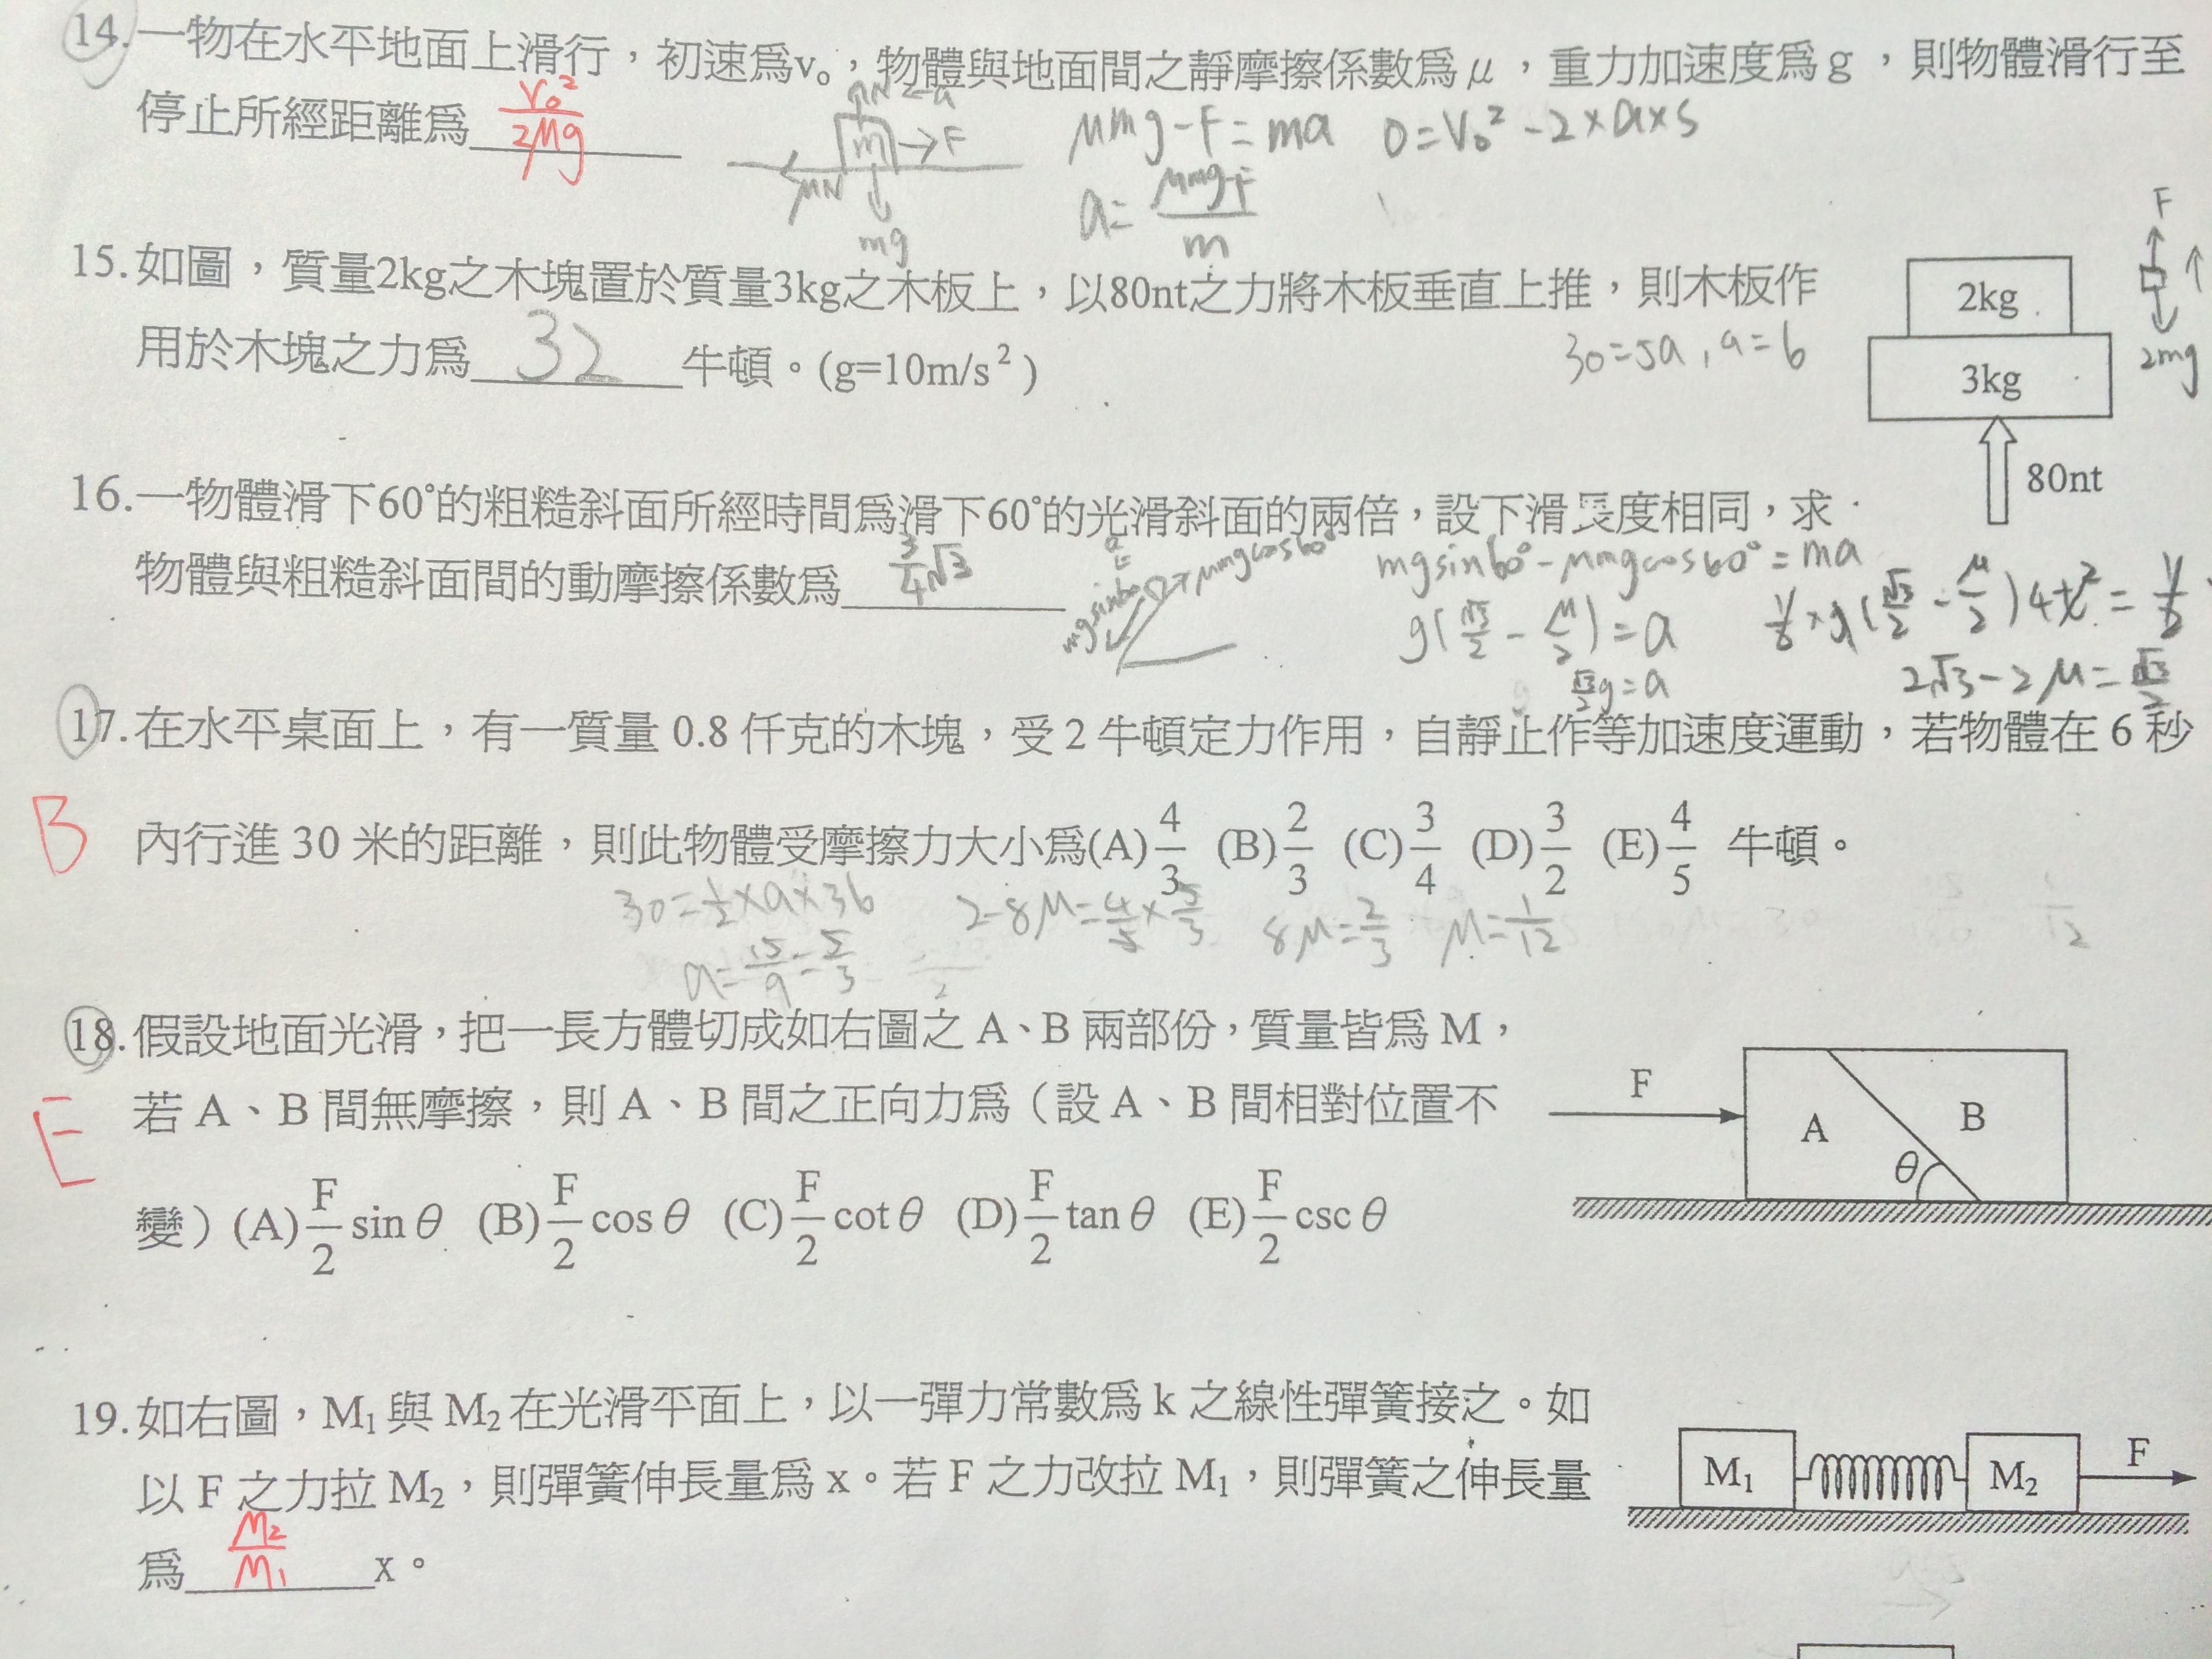 14.一物在水平地面上滑行，初速爲v₀，物體與地面間之靜摩擦係數爲μ，重力加速度爲g，則物體滑行至
停止所經距離爲 v₀²/2μg
N a
m →F
μN
mg
μmg-F=ma 0=v₀²-2×a×s
a=(μmg-F)/m
15.如圖，質量2kg之木塊置於質量3kg之木板上，以80nt之力將木板垂直上推，則木板作
用於木塊之力爲 32 牛頓。(g=10m/s²)
30=5a, a=6
2kg
3kg
80nt
F
2mg
16.一物體滑下60°的粗糙斜面所經時間爲滑下60°的光滑斜面的兩倍，設下滑長度相同，求
物體與粗糙斜面間的動摩擦係數爲 3/4√3
mgsin60 μmgcos60°
mgsin60°-μmgcos60°=ma
g(√3/2-μ/2)=a
√3/2g=a
2√3-2μ=√3/2
17.在水平桌面上，有一質量 0.8 仟克的木塊，受 2 牛頓定力作用，自靜止作等加速度運動，若物體在 6 秒
B
內行進 30 米的距離，則此物體受摩擦力大小爲(A)4/3 (B)2/3 (C)3/4 (D)3/2 (E)4/5 牛頓。
30=1/2×a×36 2-8μ=4/5×5/3 8μ=2/3 μ=1/12
a=15/9=5/3
18.假設地面光滑，把一長方體切成如右圖之 A、B 兩部份，質量皆爲 M，
若 A、B 間無摩擦，則 A、B 間之正向力爲（設 A、B 間相對位置不
E
變）(A)F/2 sinθ (B)F/2 cosθ (C)F/2 cotθ (D)F/2 tanθ (E)F/2 cscθ
F
A
B
θ
19.如右圖，M₁與 M₂在光滑平面上，以一彈力常數爲 k 之線性彈簧接之。如
以 F 之力拉 M₂，則彈簧伸長量爲 x。若 F 之力改拉 M₁，則彈簧之伸長量
爲 M₂/M₁ x。
M₁
M₂
F